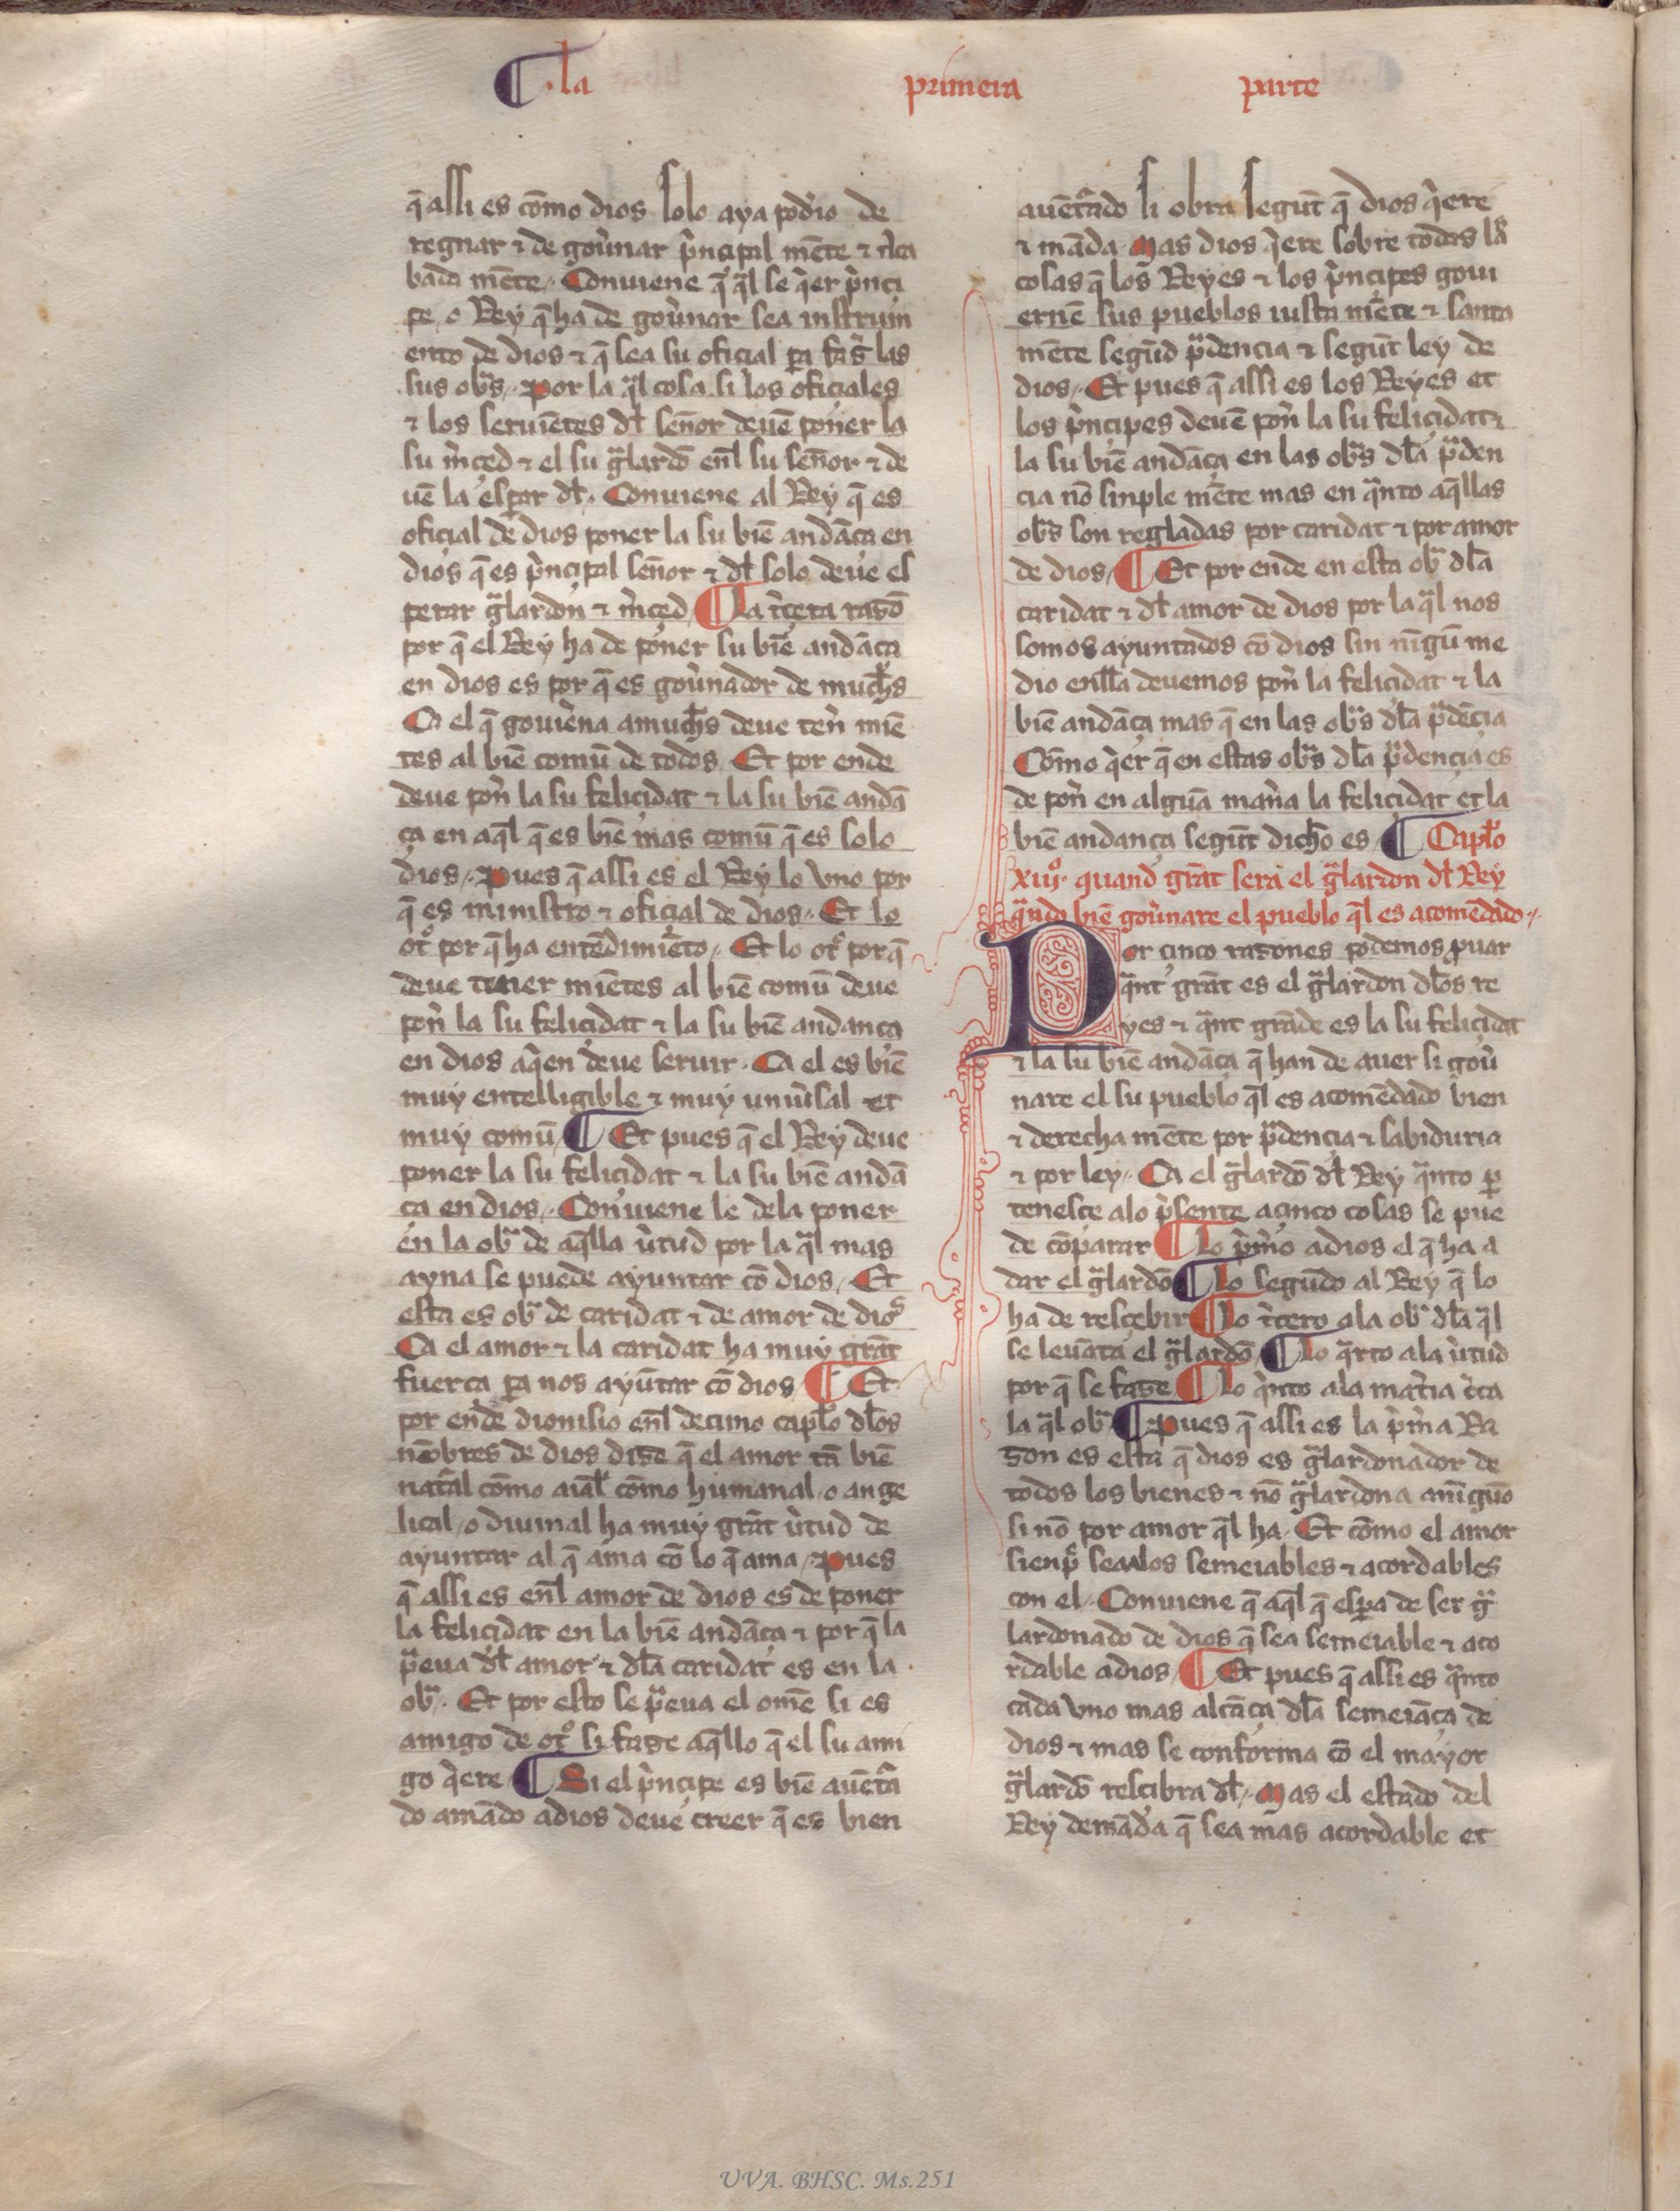 ¶ .la primera parte
q̄ assi es cōmo dios solo aya podͥo de
regnar ⁊ de goủnar p̉nçipal mēte ⁊
bada mēte. Conuiene q̄ q̄l se q̉er p̉nçi
pe, o Rey q̄ ha de goủnar sea instrum
ento de dios ⁊ q̄ sea su ofiçial ꝑa fas̉ las
sus obᵃs. Por la q̄l cosa si los ofiçiales
⁊ los seruiētes dł señor deuē poner la
su m̉çed ⁊ el su gᵃlardō enł su señor ⁊ de
uē la esꝑar dł. Conuiene al Rey q̄ es
ofiçial de dios poner la su biē andāça en
dios q̄ es p̉nçipal señor ⁊ dł solo deue es
perar gᵃlardon ⁊ m̉çed ¶ La t̉çera rasō
por q̄ el Rey ha de poner su biē andāça
en dios es por q̄ es goủnador de muchͦs
Ca el q̄ gouiẻna a muchͦs deue ten̉ miē
tes al biē comū de todos. Et por ende
deue pon̉ la su feliçidat ⁊ la su biē andā
ça en aq̄l q̄ es biē mas comū q̄ es solo
dios. Pues q̄ assi es el Rey lo vno por
q̄ es ministro ⁊ ofiçial de dios. Et lo
otͦ por q̄ ha entēdimiēto. Et lo otͦ por q̄
deue tener miētes al biē comū deue
pon̉ la su feliçidat ⁊ la su biē andança
en dios aq̉en deue seruir. Ca el es biē
muy entelligible ⁊ muy uniủsal et
muy comū ¶ Et pues q̄ el Rey deue
poner la su feliçidat ⁊ la su biē andā
ça en dios. Conuiene le dela poner
en la obᵃ de aq̄lla ủtud por la q̄l mas
ayna se puede ayuntar cō dios. Et
esta es obᵃ de caridat ⁊ de amor de dioˢ
Ca el amor ⁊ la caridat ha muy grāt
fuerça ꝑa nos ayūtar cō dios ¶ Et
por ende dionisio enł deçimo capło dłos
nōbres de dios dise q̄ el amor tā biē
natᵃl cōmo aiał cōmo humanal, o ange
lical, o diuinal ha muy grāt ủtud de
ayuntar al q̄ ama cō lo q̄ ama. Pues
q̄ assi es enł amor de dios es de poner
la feliçidat en la biē andāça ⁊ por q̄ la
pᵉua dł amor ⁊ dła caridat es en la
obᵃ. Et por esto se pᵉua el omē si es
amigo de otͦ si fase aq̄llo q̄ el su ami
go q̉ere ¶ Si el p̉nçipe es biē auētᵃ
do amādo a dios deue creer q̄ es bien
auētᵃdo si obra segūt q̄ dios q̉ere
⁊ māda. Mas dios q̉ere sobre todas las
cosas q̄ los Reyes ⁊ los p̉nçipes goui
ernē sus pueblos iusta mēte ⁊ santa
mēte segūd pᵃdencia ⁊ segūt ley de
dios. Et pues q̄ assi es los Reyes et
los p̉nçipes deuē pon̉ la su feliçidat ⁊
la su biē andāça en las obᵃs dła pᵃden
cia nō sinple mēte mas en qᵃnto aq̄llas
obᵃs son regladas por caridat ⁊ por amor
de dios. ¶ Et por ende en esta obᵃ dła
caridat ⁊ dł amor de dios por la q̄l nos
somos ayuntados cō dios sin nīgū me
dio enłla deuemos pon̉ la feliçidat ⁊ la
biē andāça mas q̄ en las obᵃs dła pᵃdēçia
Cōmo q̉er q̄ en estas obᵃs dła pᵃdençia es
de pon̉ en alguā man̉a la feliçidat et la
biē andança segūt dicho es. ¶ Capło
xiijͦ. quand grāt sera el gᵃlardon dł Rey
qᵃndo biē goủnare el pueblo q̄l es acomēdado.
Por çinco rasones podemos ꝓuar
qᵃnt grāt es el gᵃlardon dłos re
yes ⁊ qᵃnt grāde es la su feliçidat
⁊ la su biē andāça q̄ han de auer si goủ
nare el su pueblo q̄l es acomēdado bien
⁊ derecha mēte por pᵃdencia ⁊ sabiduria
⁊ por ley. Ca el gᵃlardō dł Rey qᵃnto ꝑ
tenesce alo p̉sente a çinco cosas se pue
de cōparar ¶ Lo p̉m̉o a dios el q̄ ha a
dar el gᵃlardō ¶ Lo segūdo al Rey q̄ lo
ha de resçebir ¶ Lo t̉çero ala obᵃ dła q̄l
se leuāta el gᵃlardō ¶ Lo qᵃrto ala ủtud
por q̄ se fase ¶ Lo q̉nto ala mat̉ia c̉ca
la q̄l obᵃ ¶ Pues q̄ assi es la p̉m̉a Ra
son es esta q̄ dios es gᵃlardonador de
todos los bienes ⁊ nō gᵃlardona a nīguō
si nō por amor q̄l ha. Et cōmo el amor
sienpͤ sea los semeiables ⁊ acordables
con el. Conuiene q̄ aq̄l q̄ esꝑa de ser gᵃ
lardonado de dios q̄ sea semeiable ⁊ aco
rdable a dios ¶ Et pues q̄ assi es qᵃnto
cada vno mas alcāça dła semeiāça de
dios ⁊ mas se conforma cō el mayor
gᵃlardō resçibra dł. Mas el estado del
Rey demāda q̄ sea mas acordable et
UVA. BHSC. Ms.251